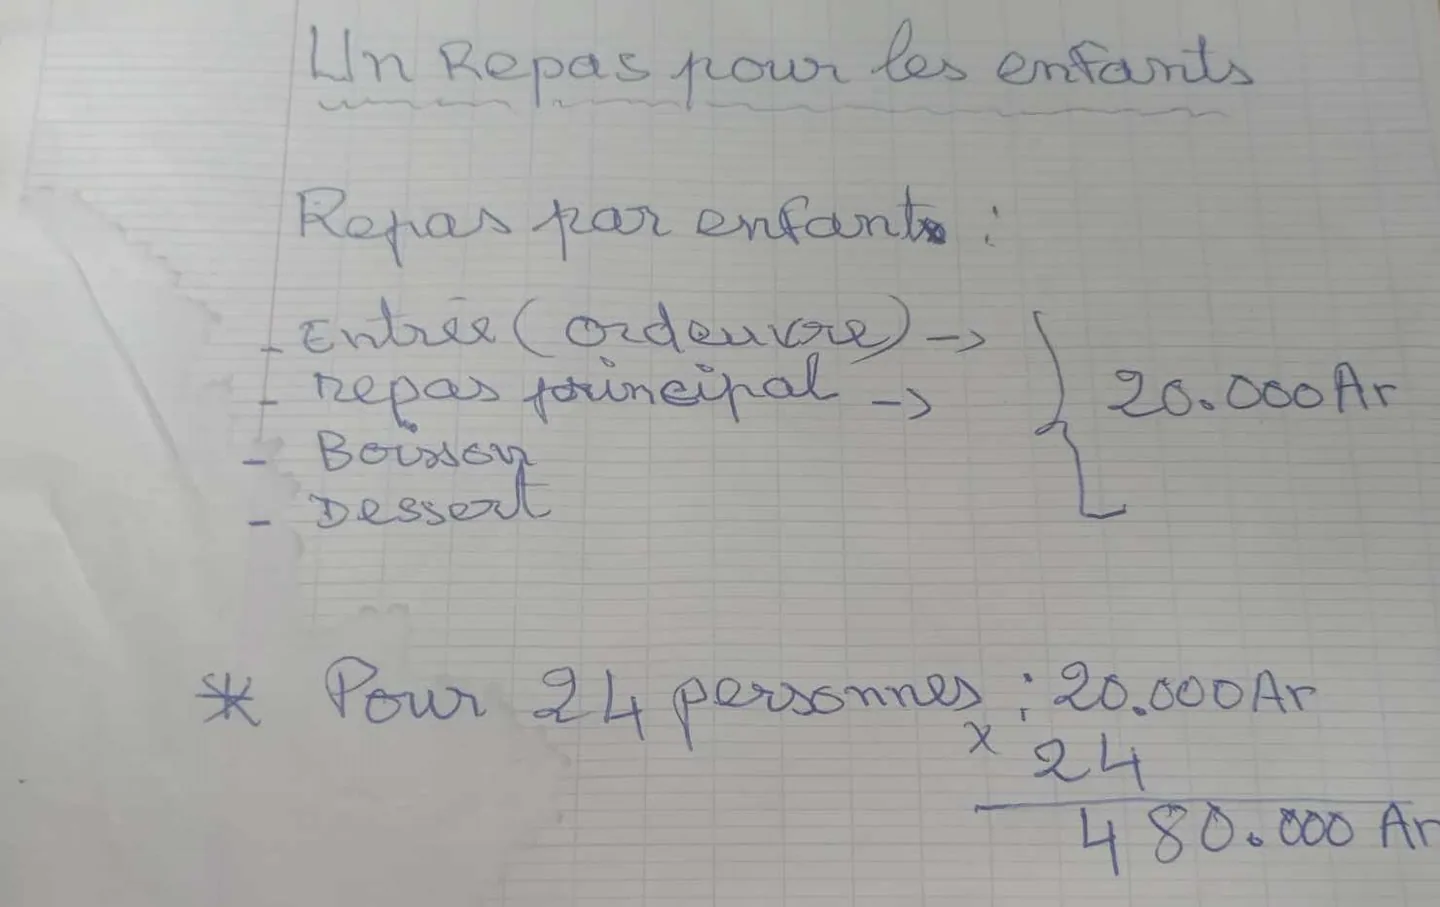 Un Repas pour les enfants
Repas par enfant :
- Entrée (ordeuvre) ->
- repas principal ->
- Boisson
- Dessert
} 20.000 Ar
* Pour 24 personnes : 20.000 Ar
x 24
480.000 Ar